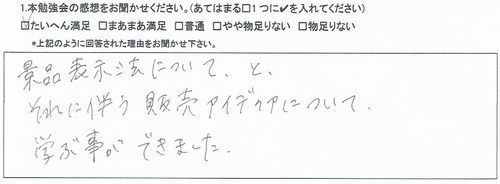 1.本勉強会の感想をお聞かせください。(あてはまる□1つに✔を入れてください)
☑たいへん満足 □まあまあ満足 □普通 □やや物足りない □物足りない
*上記のように回答された理由をお聞かせ下さい。
景品表示法について、と、
それに伴う販売アイディアについて、
学ぶ事ができました。